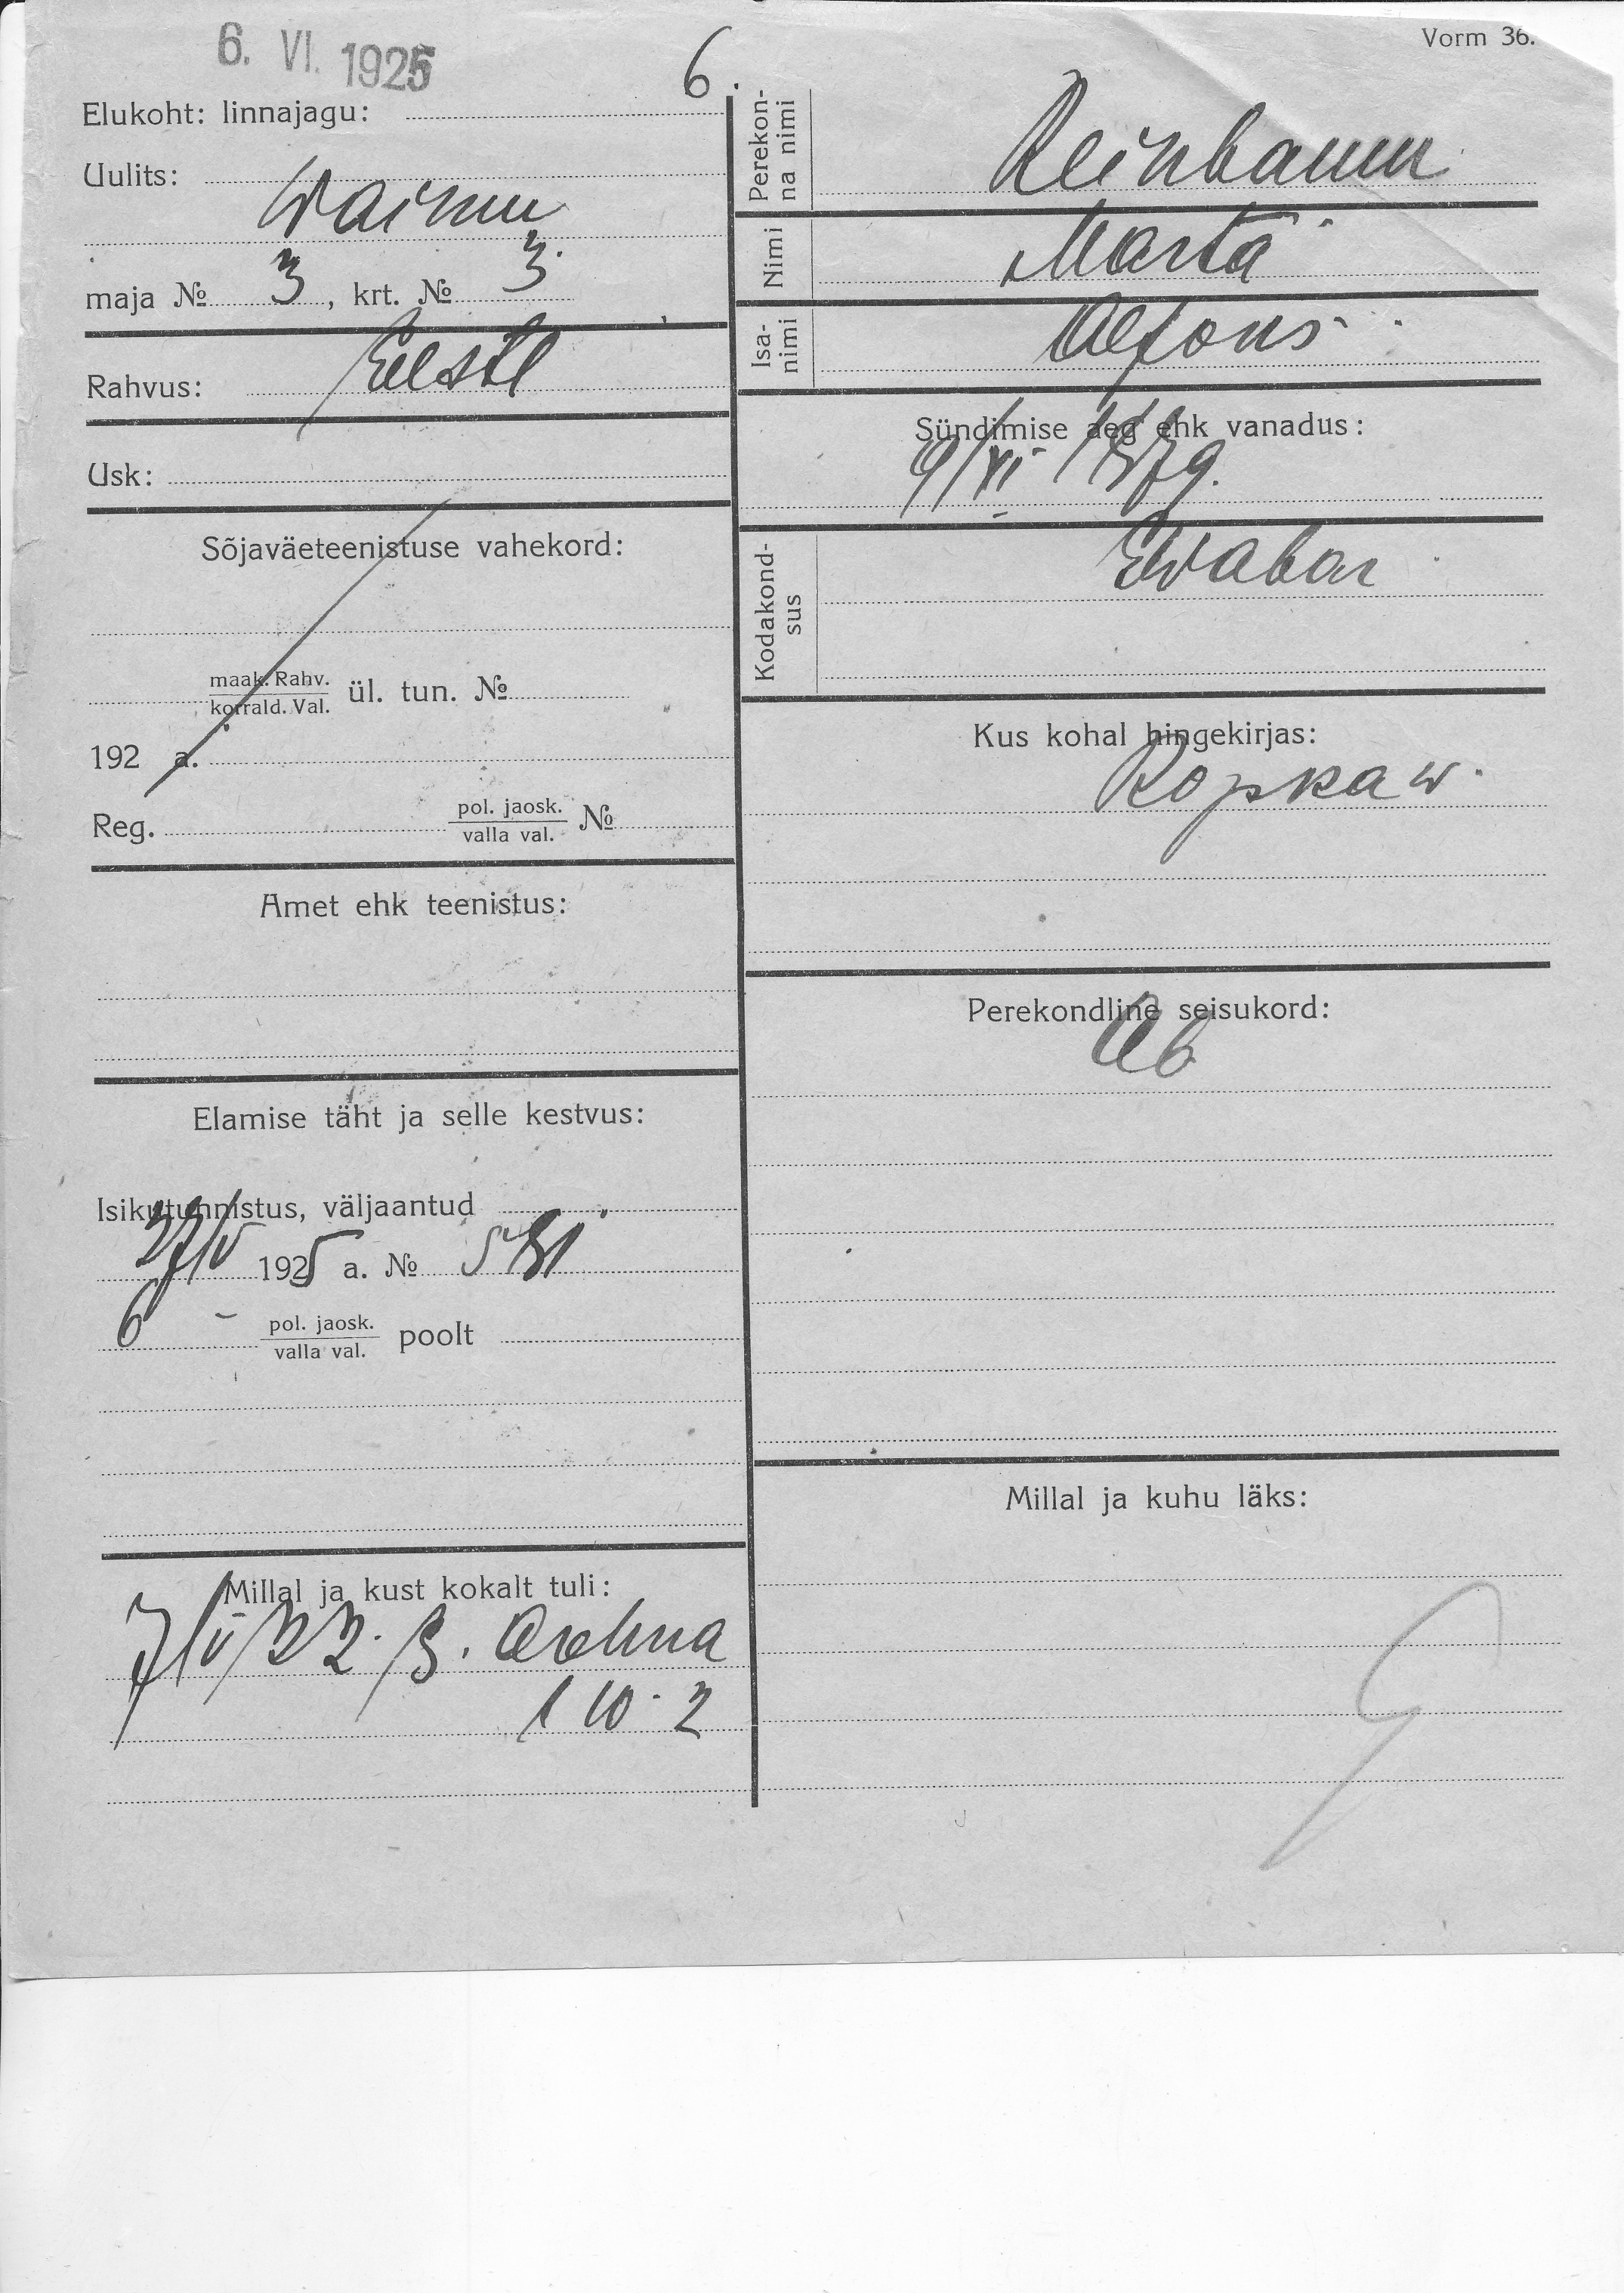 6. VI. 1925
6.
Vorm 36.
Elukoht: linnajagu:
Uulits:
Wainu
maja № 3, krt. № 3.
Rahvus: Eesti
Usk:
Sõjaväeteenistuse vahekord:
maak. Rahv.
korrald. Val. ül. tun. №
192 a.
Reg. pol. jaosk.
valla val. №
Amet ehk teenistus:
Elamise täht ja selle kestvus:
Isikutunnistus, väljaantud
27/V 1925 a. № 581
6 - pol. jaosk.
valla val. poolt
Millal ja kust kokalt tuli:
7/V 22.
1 10. 2
Perekon-
na nimi
Reinbaum
Nimi Marta
Isa-
nimi Alfons
Sündimise aeg ehk vanadus:
9/XI 1879.
Kodakond-
sus
E Wabar
Kus kohal hingekirjas:
Ropka w.
Perekondline seisukord:
Ab
Millal ja kuhu läks: